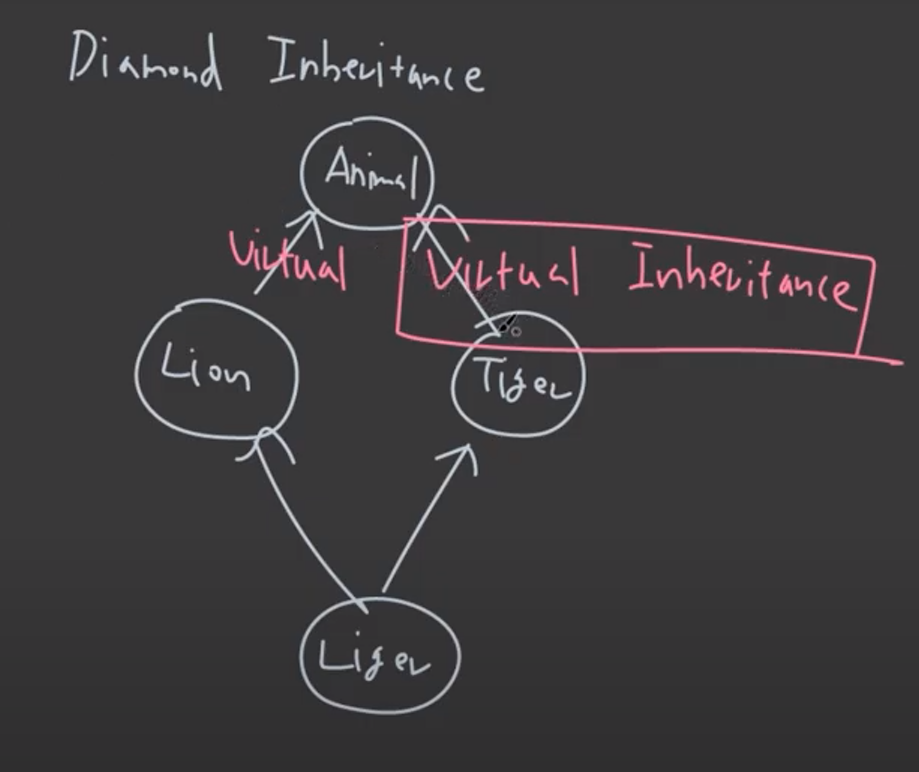 Diamond Inheritance
Animal
Virtual
Virtual Inheritance
Lion
Tiger
Liger